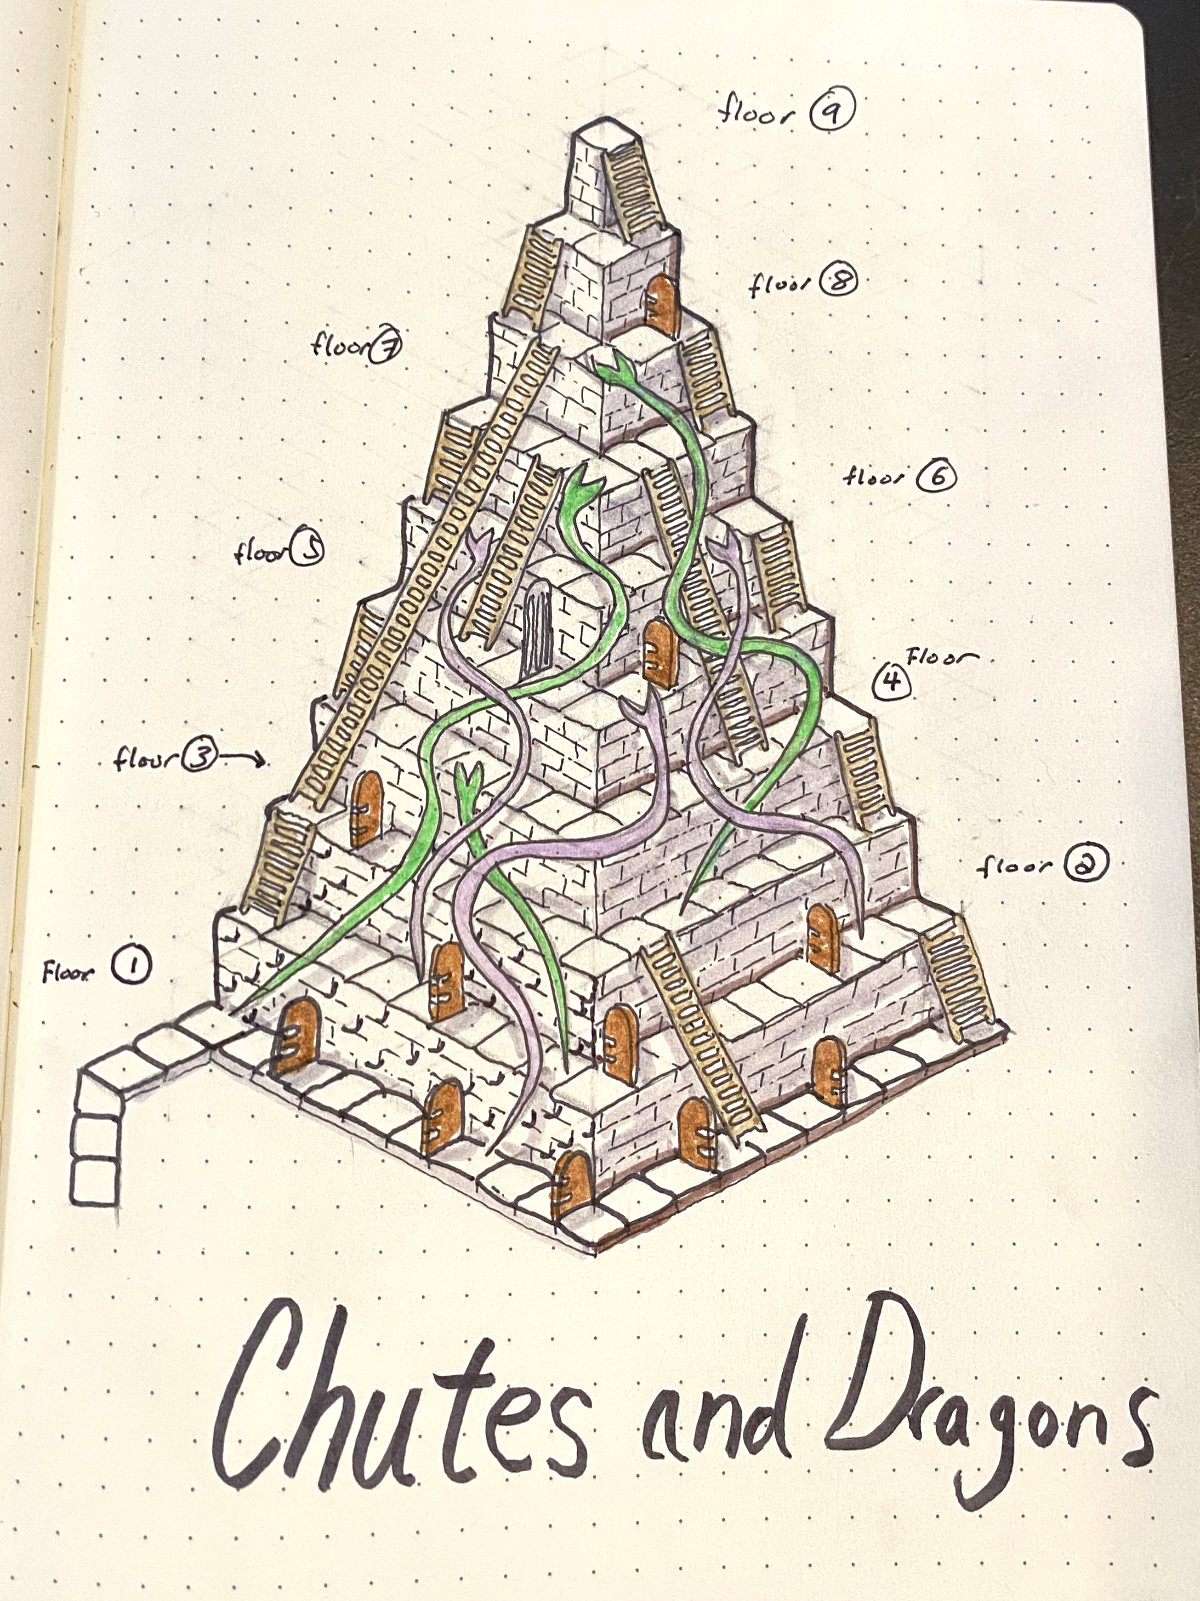 floor 9
floor 8
floor 7
floor 6
floor 5
Floor
4
floor 3 →
floor 2
Floor 1
Chutes and Dragons